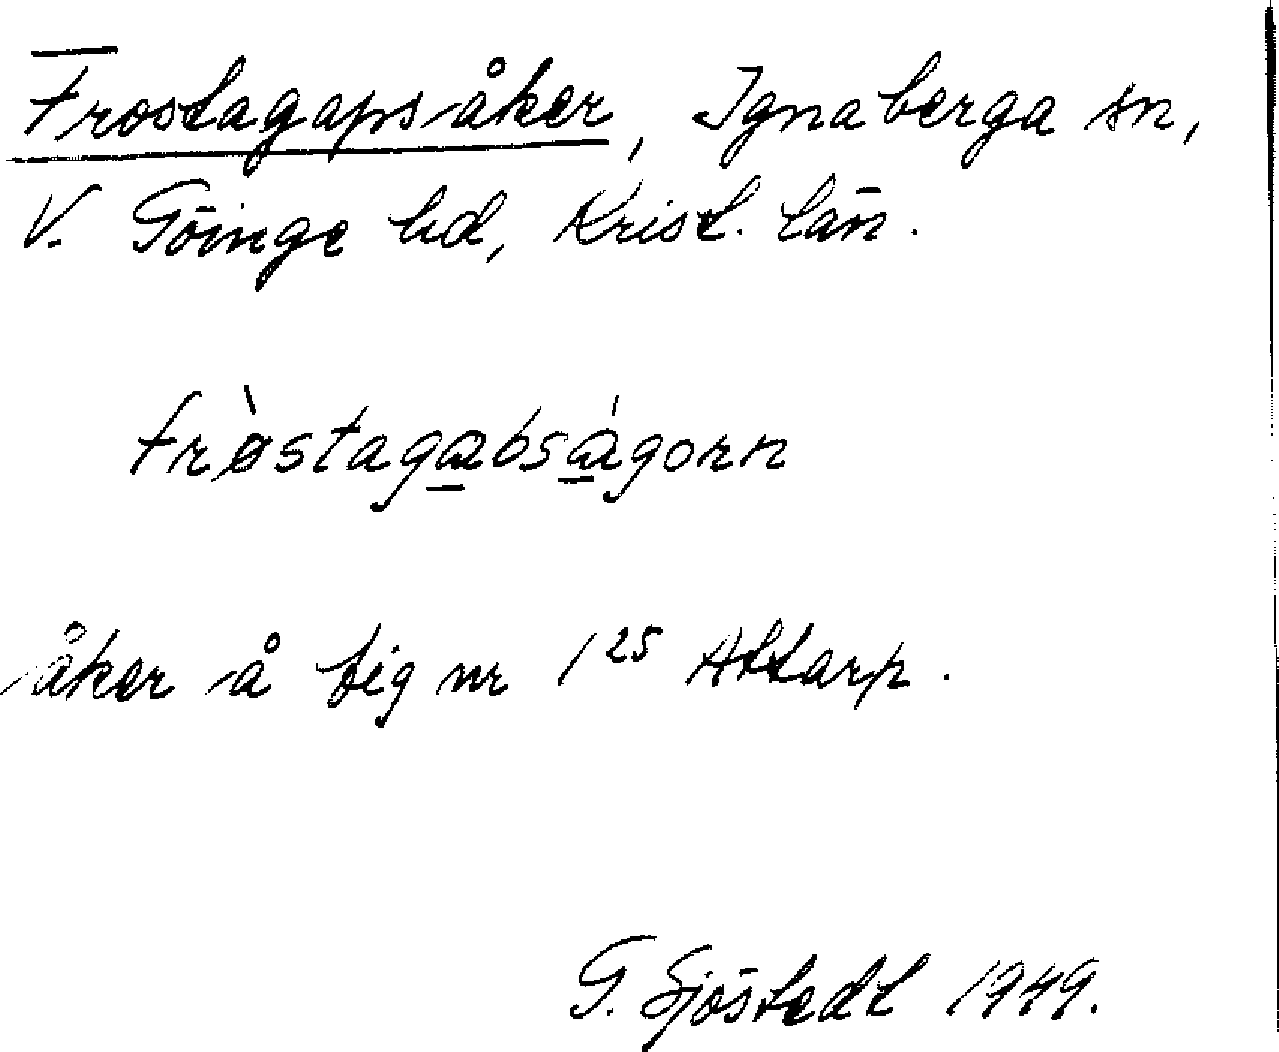 Frostagapsåker, Ignaberga sn,
V. Göinge hd, Krist. län.
frø̀staga̲bsǻ̲gorn
åker å fig nr 1²⁵ Attarp.
G. Sjöstedt 1949.